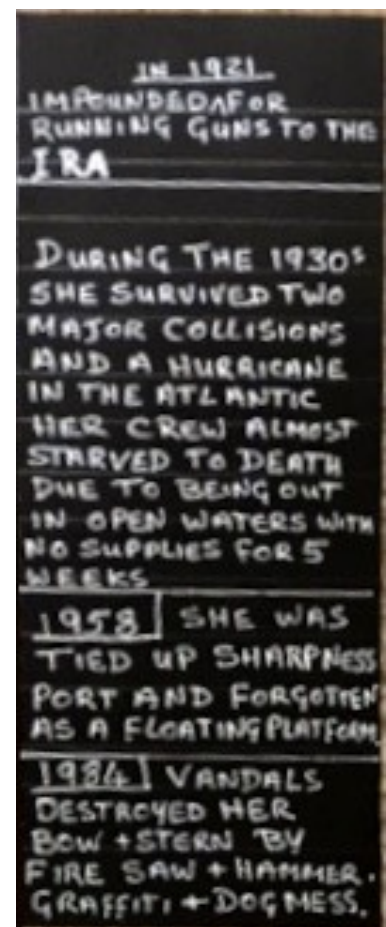 IN 1921
IMPOUNDED^FOR
RUNNING GUNS TO THE
IRA
DURING THE 1930s
SHE SURVIVED TWO
MAJOR COLLISIONS
AND A HURRICANE
IN THE ATLANTIC
HER CREW ALMOST
STARVED TO DEATH
DUE TO BEING OUT
IN OPEN WATERS WITH
NO SUPPLIES FOR 5
WEEKS
1958 SHE WAS
TIED UP SHARPNESS
PORT AND FORGOTTEN
AS A FLOATING PLATFORM
1984 VANDALS
DESTROYED HER
BOW + STERN BY
FIRE SAW + HAMMER.
GRAFFITI + DOG MESS.